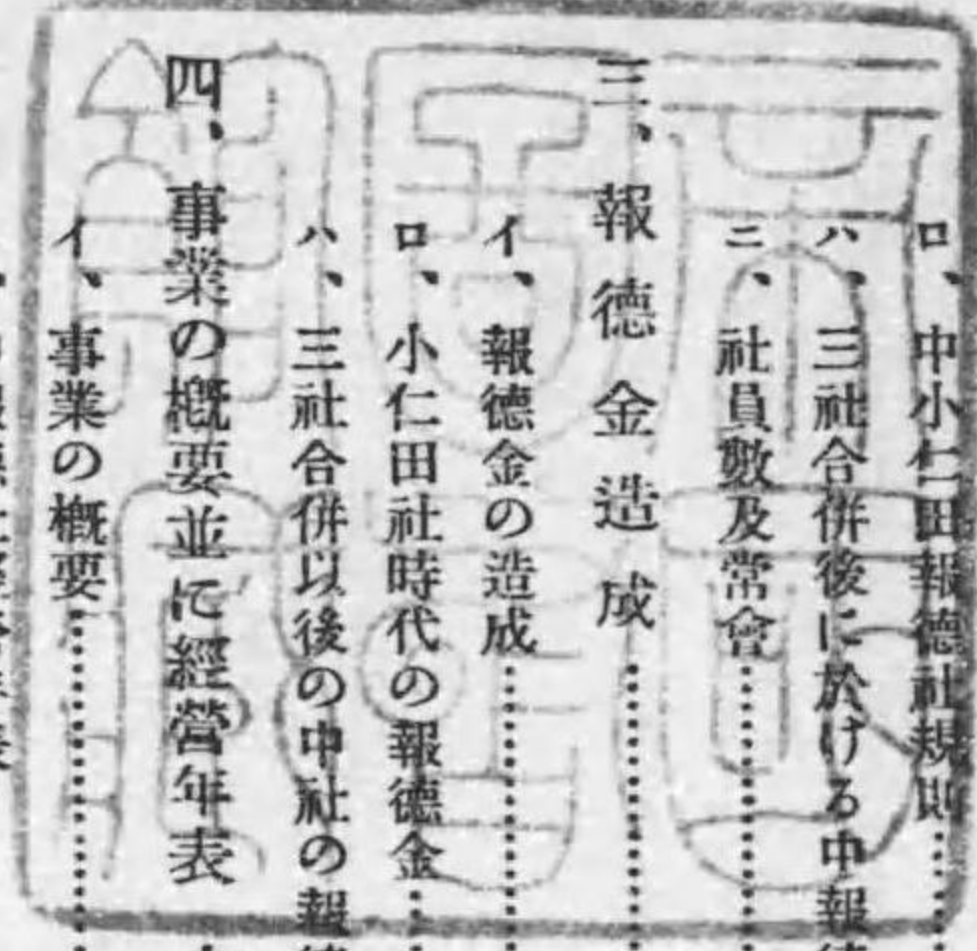 ロ、中小仁田報德社規則
ハ、三社合併後に於ける中報德
ニ、社員數及常會
三、報德金造成
イ、報德金の造成
ロ、小仁田社時代の報德金
ハ、三社合併以後の中社の報德
四、事業の槪要並に經營年表
イ、事業の槪要